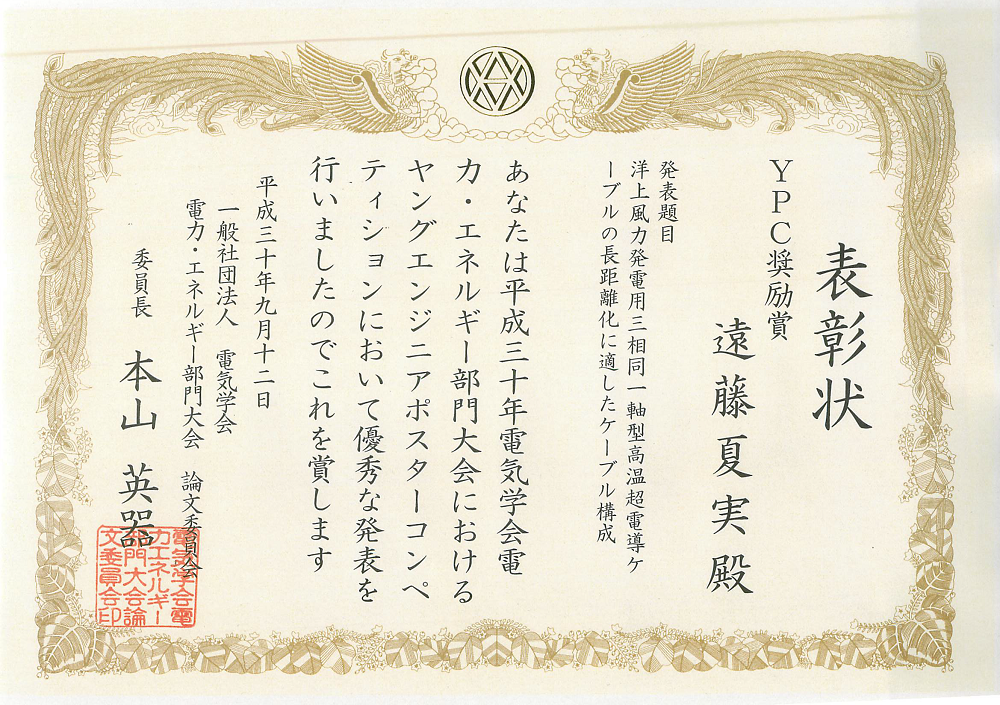 表彰状
YPC奨励賞
遠藤夏実 殿
発表題目
洋上風力発電用三相同一軸型高温超電導ケ
ーブルの長距離化に適したケーブル構成
あなたは平成三十年電気学会電
力・エネルギー部門大会における
ヤングエンジニアポスターコンペ
ティションにおいて優秀な発表を
行いましたのでこれを賞します
平成三十年九月十二日
一般社団法人 電気学会
電力・エネルギー部門大会 論文委員会
委員長 本山 英器
電気学会電
力エネルギー
部門大会論
文委員会印